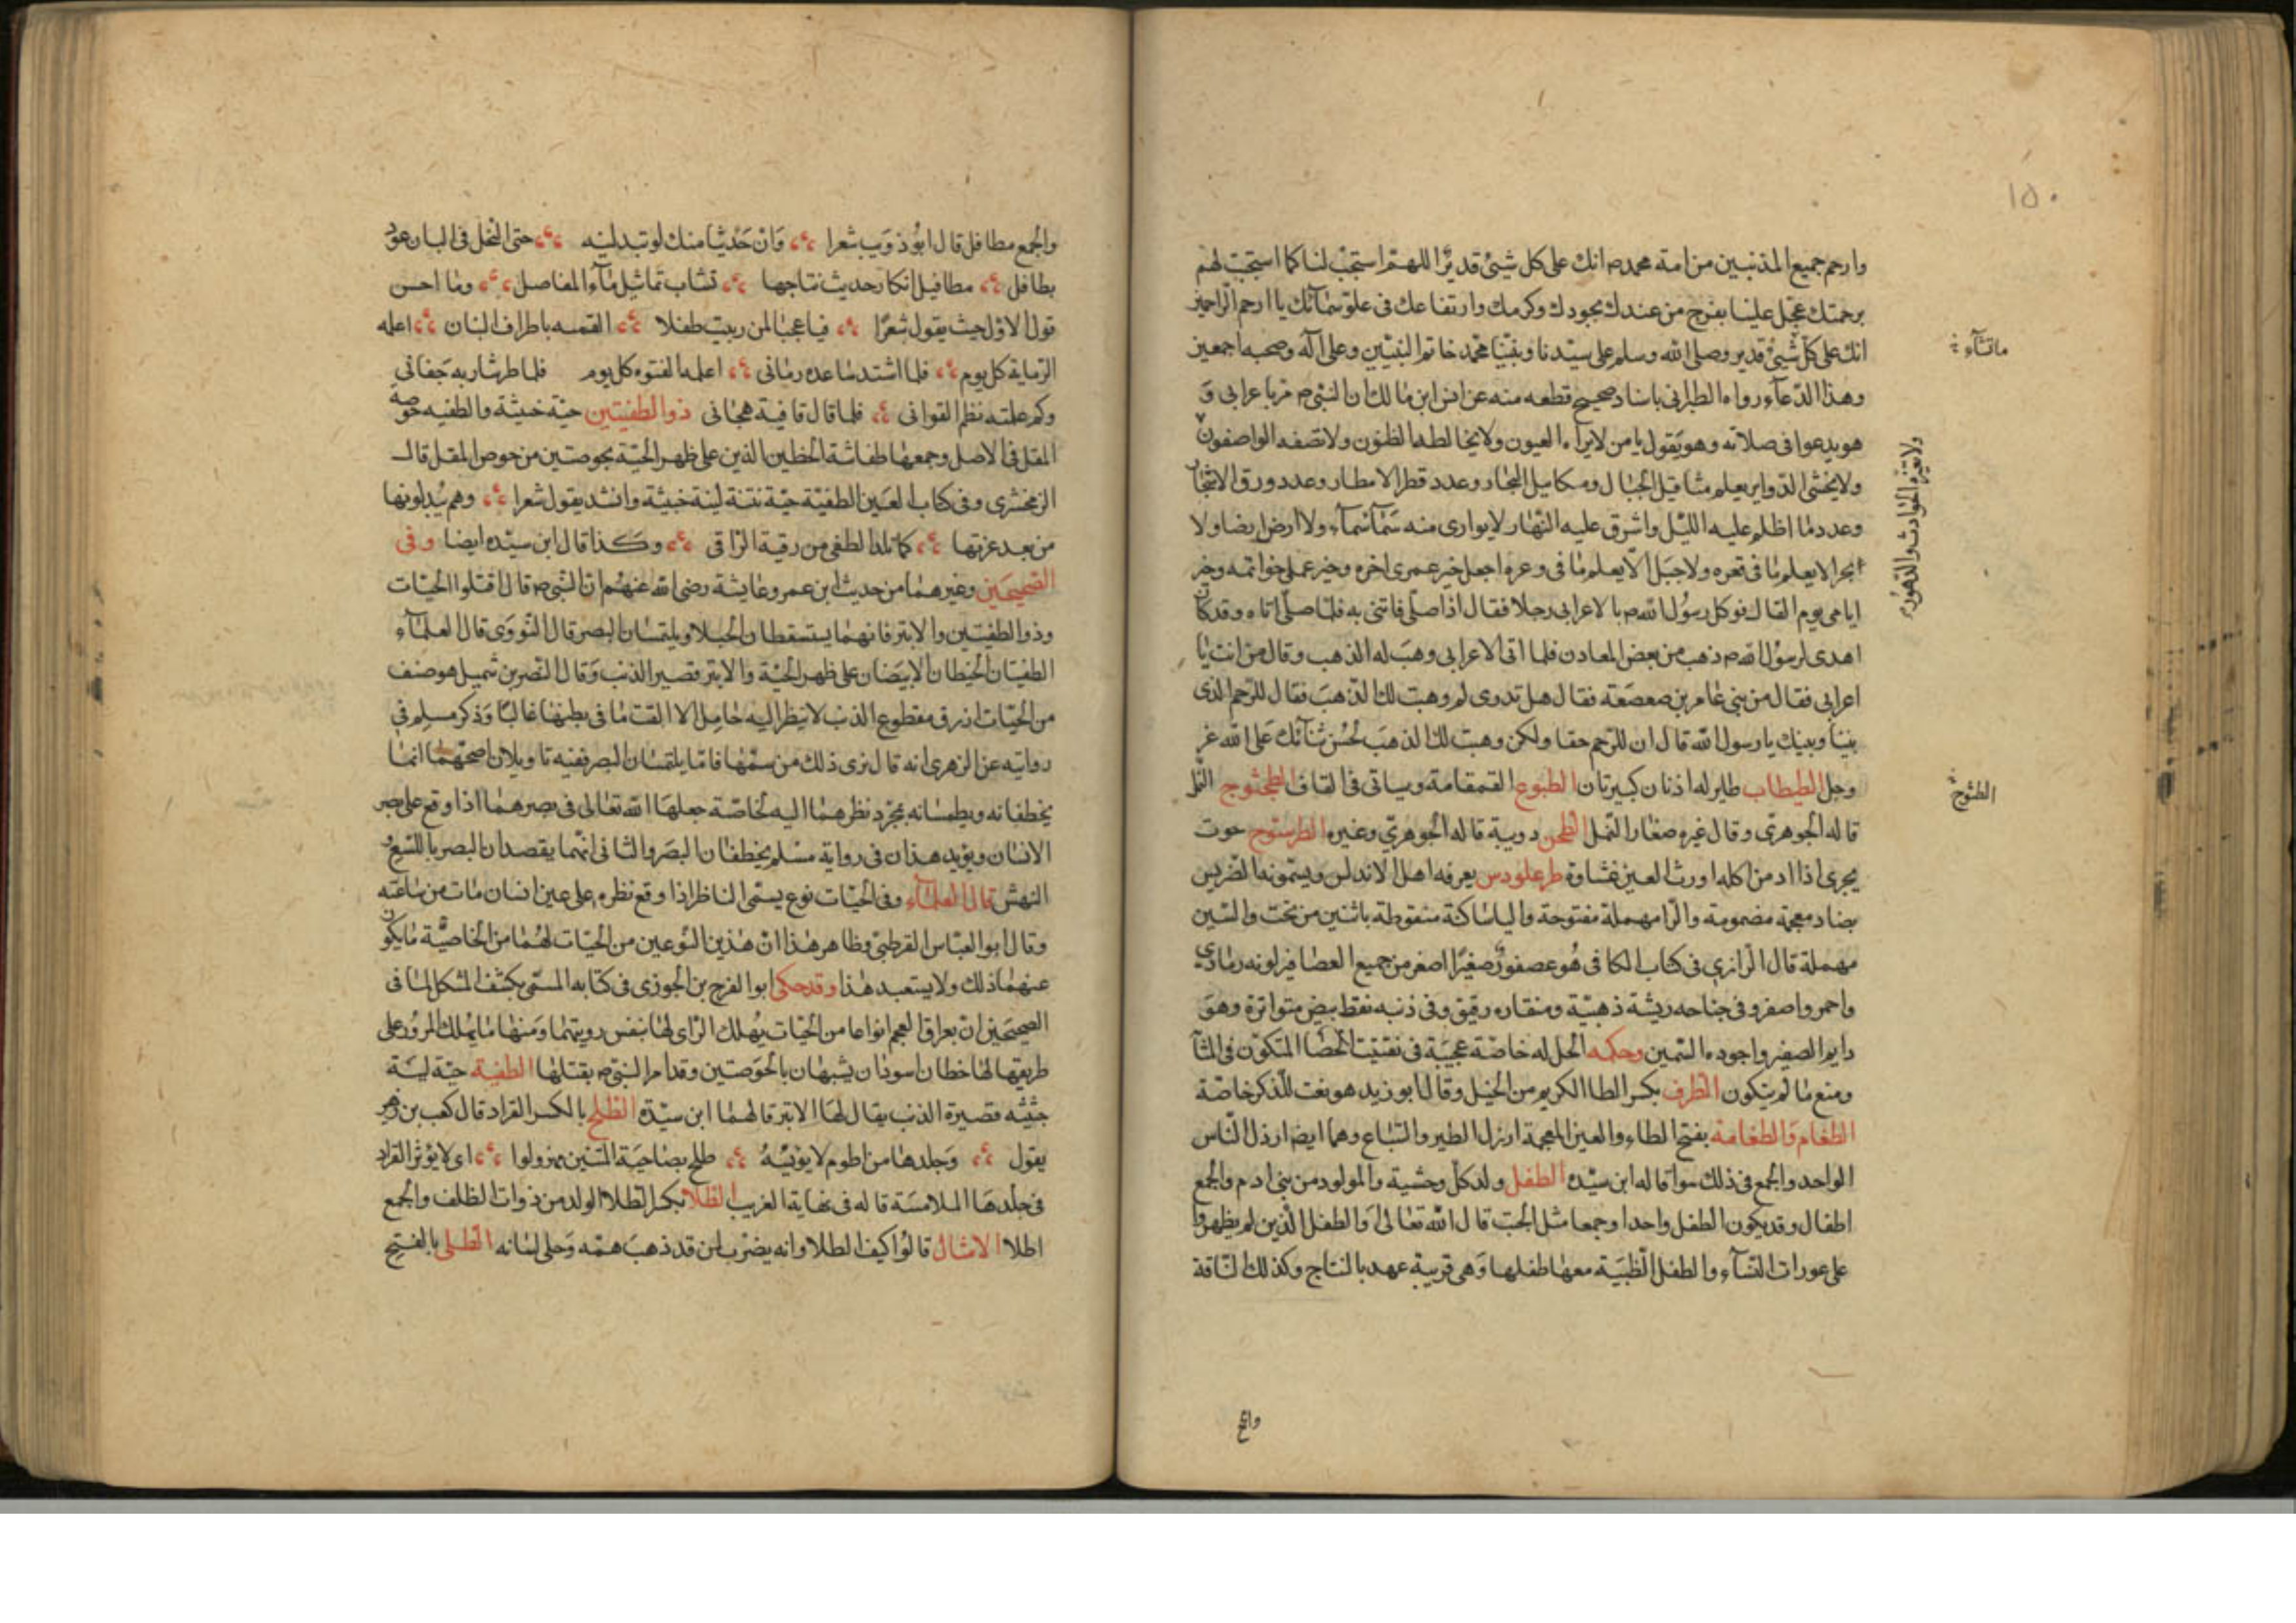 ١٥٠
وارحم جميع المذنبين من امة محمدم انك على كل شيئ قديرٌ اللهم استجب لنا كما استجبت لهم
برحمتك عجّل علينا بفرج من عندك بجودك وكرمك وارتفاعك فى علوّ سمائك يا ارحم الراحمين
انك على كلّ شيئ قدير وصلى الله وسلم على سيّدنا ونبيّنا محمّد خاتم النبيّين وعلى اله وصحبه اجمعين
ماتشآء
وهذا الدّعآء رواه الطبرانى باسناد صحيح قطعه منه عن انس ابن مالك ان النبىم مرّ باعرابى وَ
هو يدعوا فى صلاته وهو يَقول يا من لا يراه العيون ولا يخالطه الظنون ولا تصفه الواصفون
ولا تغيّره الحوادث والدهور
ولا يخشى الدّواير يعلم مثاقيل الجبال ومكاييل البحار وعدد قطر الامطار وعدد ورق الاشجار
وعدد ما اظلم عليه الليْل واشرق عليه النّهار لا يوارى منه سَمآ سَمآء ولا ارض ارضا ولا
بحر الا يعلم ما فى قعره ولا جبَل الّا يعلم مٰا فى وعره اجعل خير عمرى اخره وخير عملى خواتمه وخير
ايامى يوم القاك فوكل رسوُل اللهم بالاعرابى رجلا فقال اذا صلّى فاتنى به فلمّا صلّى اتاه وقد كان
اهدى لرسوُل اللهم ذهب من بعض المعادن فلما اتى الاعرابى وهبَ له الذهب وقال من انت يٰا
اعرابى فقال من بنى عٰامر بن صعصَعَة فقال هل تدرى لم وهبت لك الذهبَ فقال للرّحم الذى
بيننا وبينك يا رسول الله قال ان للرّحم حقا ولكن وهبت لك الذهبَ لحُسْن ثنآئك عَلى الله عزّ
وجل الطيطاب طاير له اذنان كبيرتان الطبوع القمقامة وسياتى فى القاف الطثوج النّمل
الطثوج
قاله الجوهرى وقال غيره صغٰار النّمل الطحن دويبة قاله الجوهرىّ وغيره الطرستوج حوت
بحرى اذا ادمن اكله اورث العين غشاوة طرغلودس يعرفه اهل الاندلس ويسمّونه الضريس
بضاد معجمة مضمومة والرّا مهملة مفتوحة واليا ساكنة منقوطة باثنين من تحت والسّين
مهملة قال الّرازي فى كتاب الكافى هُو عصفورٌ صغيرًا اصغر من جميع العصٰافير لونه رمٰادى
واحمر واصفر وفى جناحه ريشة ذهبيّة ومنقاره رقيق وفى ذنبه نقط بيض متواترة وهوَ
دايم الصفير واجوده السّمين وحكمه الحل له خاصّة عجيبَة فى تفتيت الحصٰا المتكوّن فى المثا
ومنع مٰا لم يتكون الطرف بكسر الطا الكريم من الخيل وقال ابو زيد هو نعت للّذكر خاصّة
الطغام وَالطغامة بفتح الطاء والغين المعجمة ارذل الطير والسّبٰاع وهما ايضا ارذل النّاس
الواحد والجمع فى ذلك سوا قاله ابن سيّده الطفل ولد كلّ وحشية والمولود من بنى ادم والجمع
اطفال وقد يكون الطفل واحدا وجمعا مثل الجنب قال الله تعٰالى اَو الطفل الّذين لم يظهروا
على عورات النسآء والطفل الظبيَة معهٰا طفلهٰا وَهى قريبة عهد بالنتاج وكذلك النّاقة
والجمع
والجمع مطافل قال ابوُ ذوَيب شعرا وَان حَديثًا منك لو تبدلينه حتى النحل فى البان عوذ
بطافل مطافيل ابكار حديث نتاجها تشاب بماء مثل مٰآء المفاصل ومٰا احسن
قول الاوّل حيث يقول شعرًا فيا عجبٰا لمن ربيت طفلا القمه باطراف البنان اعلمه
الرّماية كل يوم فلما اشتد سٰاعده رمٰانى اعلمه الفتوه كل يوم فلما طرّ شاربه جَفانى
وكم علمته نظم القوافى فلما قال قافية هجٰانى ذو الطفيتين حيّة خبيثة والطفيه خوصه
المقل فى الاصل وجمعهٰا طفا شبّة الخطين الذين على ظهر الحيّة بخوصتين من خوص المقل قال
الزمخشرى وفى كتاب العَين الطفيّة حيّة نتنة لينة خبيثة وانشد يقول شعرا وهم يُدلونها
من بعد عزتها كما تلذ الطفى من رقية الرّاقى وكذا قال ابن سيّده ايضا وفى
الصّحيحَين وغيرهمٰا من حديث ابن عمر وعٰايشة رضى الله عَنهُم انّ النّبىم قال اقتلوا الحيّات
وذو الطفيَتين والابتر فانهمٰا يستسقطان الحبَلا ويلتمسٰان البصر قال النّووَى قال العلمآء
الطفيَتان الخيطان الابيَضان على ظهر الحيّة والابتر قصير الذنب وَقال النّضر بن شميل هو صنف
من الحيّات ازرق مقطوع الذنب لا ينظر اليه حٰامِل الا القت مٰا فى بطنهٰا غالبًا وَذكر مسلم فى
روايته عن الزهرى انه قال نرى ذلك من سمّهٰا فامّا يلتمسٰان البصر ففيه تاويلان اصحّهمٰا انمٰا
يخطفانه ويطمسٰانه بمجرّد نظرهمٰا اليه لخاصّة جعلهَا الله تعٰالى فى بصرهمٰا اذا وقع على بصر
الانسٰان ويؤيد هذان فى رواية مسْلم يخطفٰان البصَر والثانى انهّما يقصدان البصر باللسْع و
النهش قال العلمآء وفى الحيّات نوع يسمّى الناظر اذا وقع نظره على عين انسان مٰات من سٰاعته
وقال ابو العبّاس القرطبىّ وظاهر هٰذا انّ هٰذين النّوعين من الحيّات لهُمٰا من الخٰاصيّة مٰا يكون
عنهمٰا ذلك ولا يستبعد هٰذا وقد حكى ابو الفرج بن الجوزى فى كتابه المسمّى بكشف المشكل لمٰا فى
الصحيحَين انّ بعراق العجم انواعا من الحيّات يهْلك الرّاى لهٰا بنفس رويتهٰا وَمنهٰا مٰا يهْلك المروُر على
طريقهٰا لهٰا خطان اسودٰان يشبهٰان بالخوَصتين وقد امر النّبىم بقتلهٰا الطفية حيّة لينَة
خبيثَه قصيرة الذنب يقال لهَا الابتر قالهمٰا ابن سيّدة الطلح بالكسر القراد قال كعب بن زهير
يقول وَجلدهٰا من اطوم لا يؤيّسُه طلح بضٰاحيَة المتنين مهزولوا اى لا يؤثر القراد
فى جلدهَا الملامسَة قاله فى نهٰاية الغريب الطلا بكسر الطلا الولد من ذوات الظلف والجمع
اطلا الامثال قالوُا كيف الطلا وانه يضرب لمن قد ذهبَ همّه وَحلى لسٰانه الطلى بالفتح